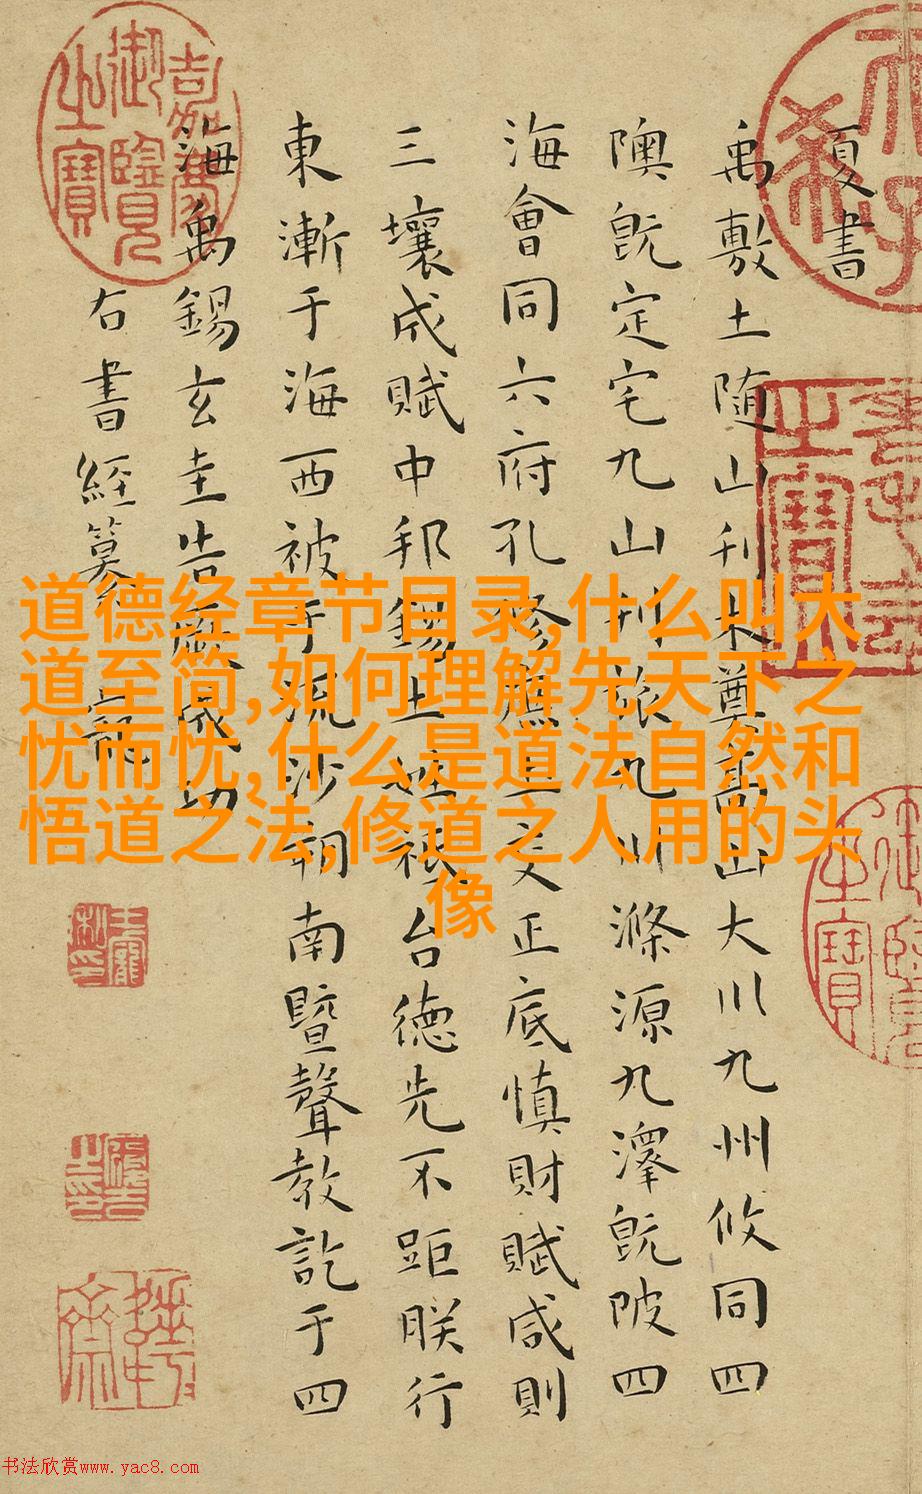 夏書
禹敷土随山刊木奠高山大川九州攸同四
隩既定宅九山刊旅九川滌源九澤既陂四
海會同六府孔修庶土交正底慎財賦咸則
三壤成賦中邦錫土姓祗台徳先不距朕行
東漸于海西被于流沙朔南暨聲教訖于四
海禹錫玄圭告厥成功
右書經
嘉慶御覽之寶
道德经章节目录,什么叫大
道至简,如何理解先天下之
忧而忧,什么是道法自然和
悟道之法,修道之人用的头
像
书法欣赏www.yac8.com